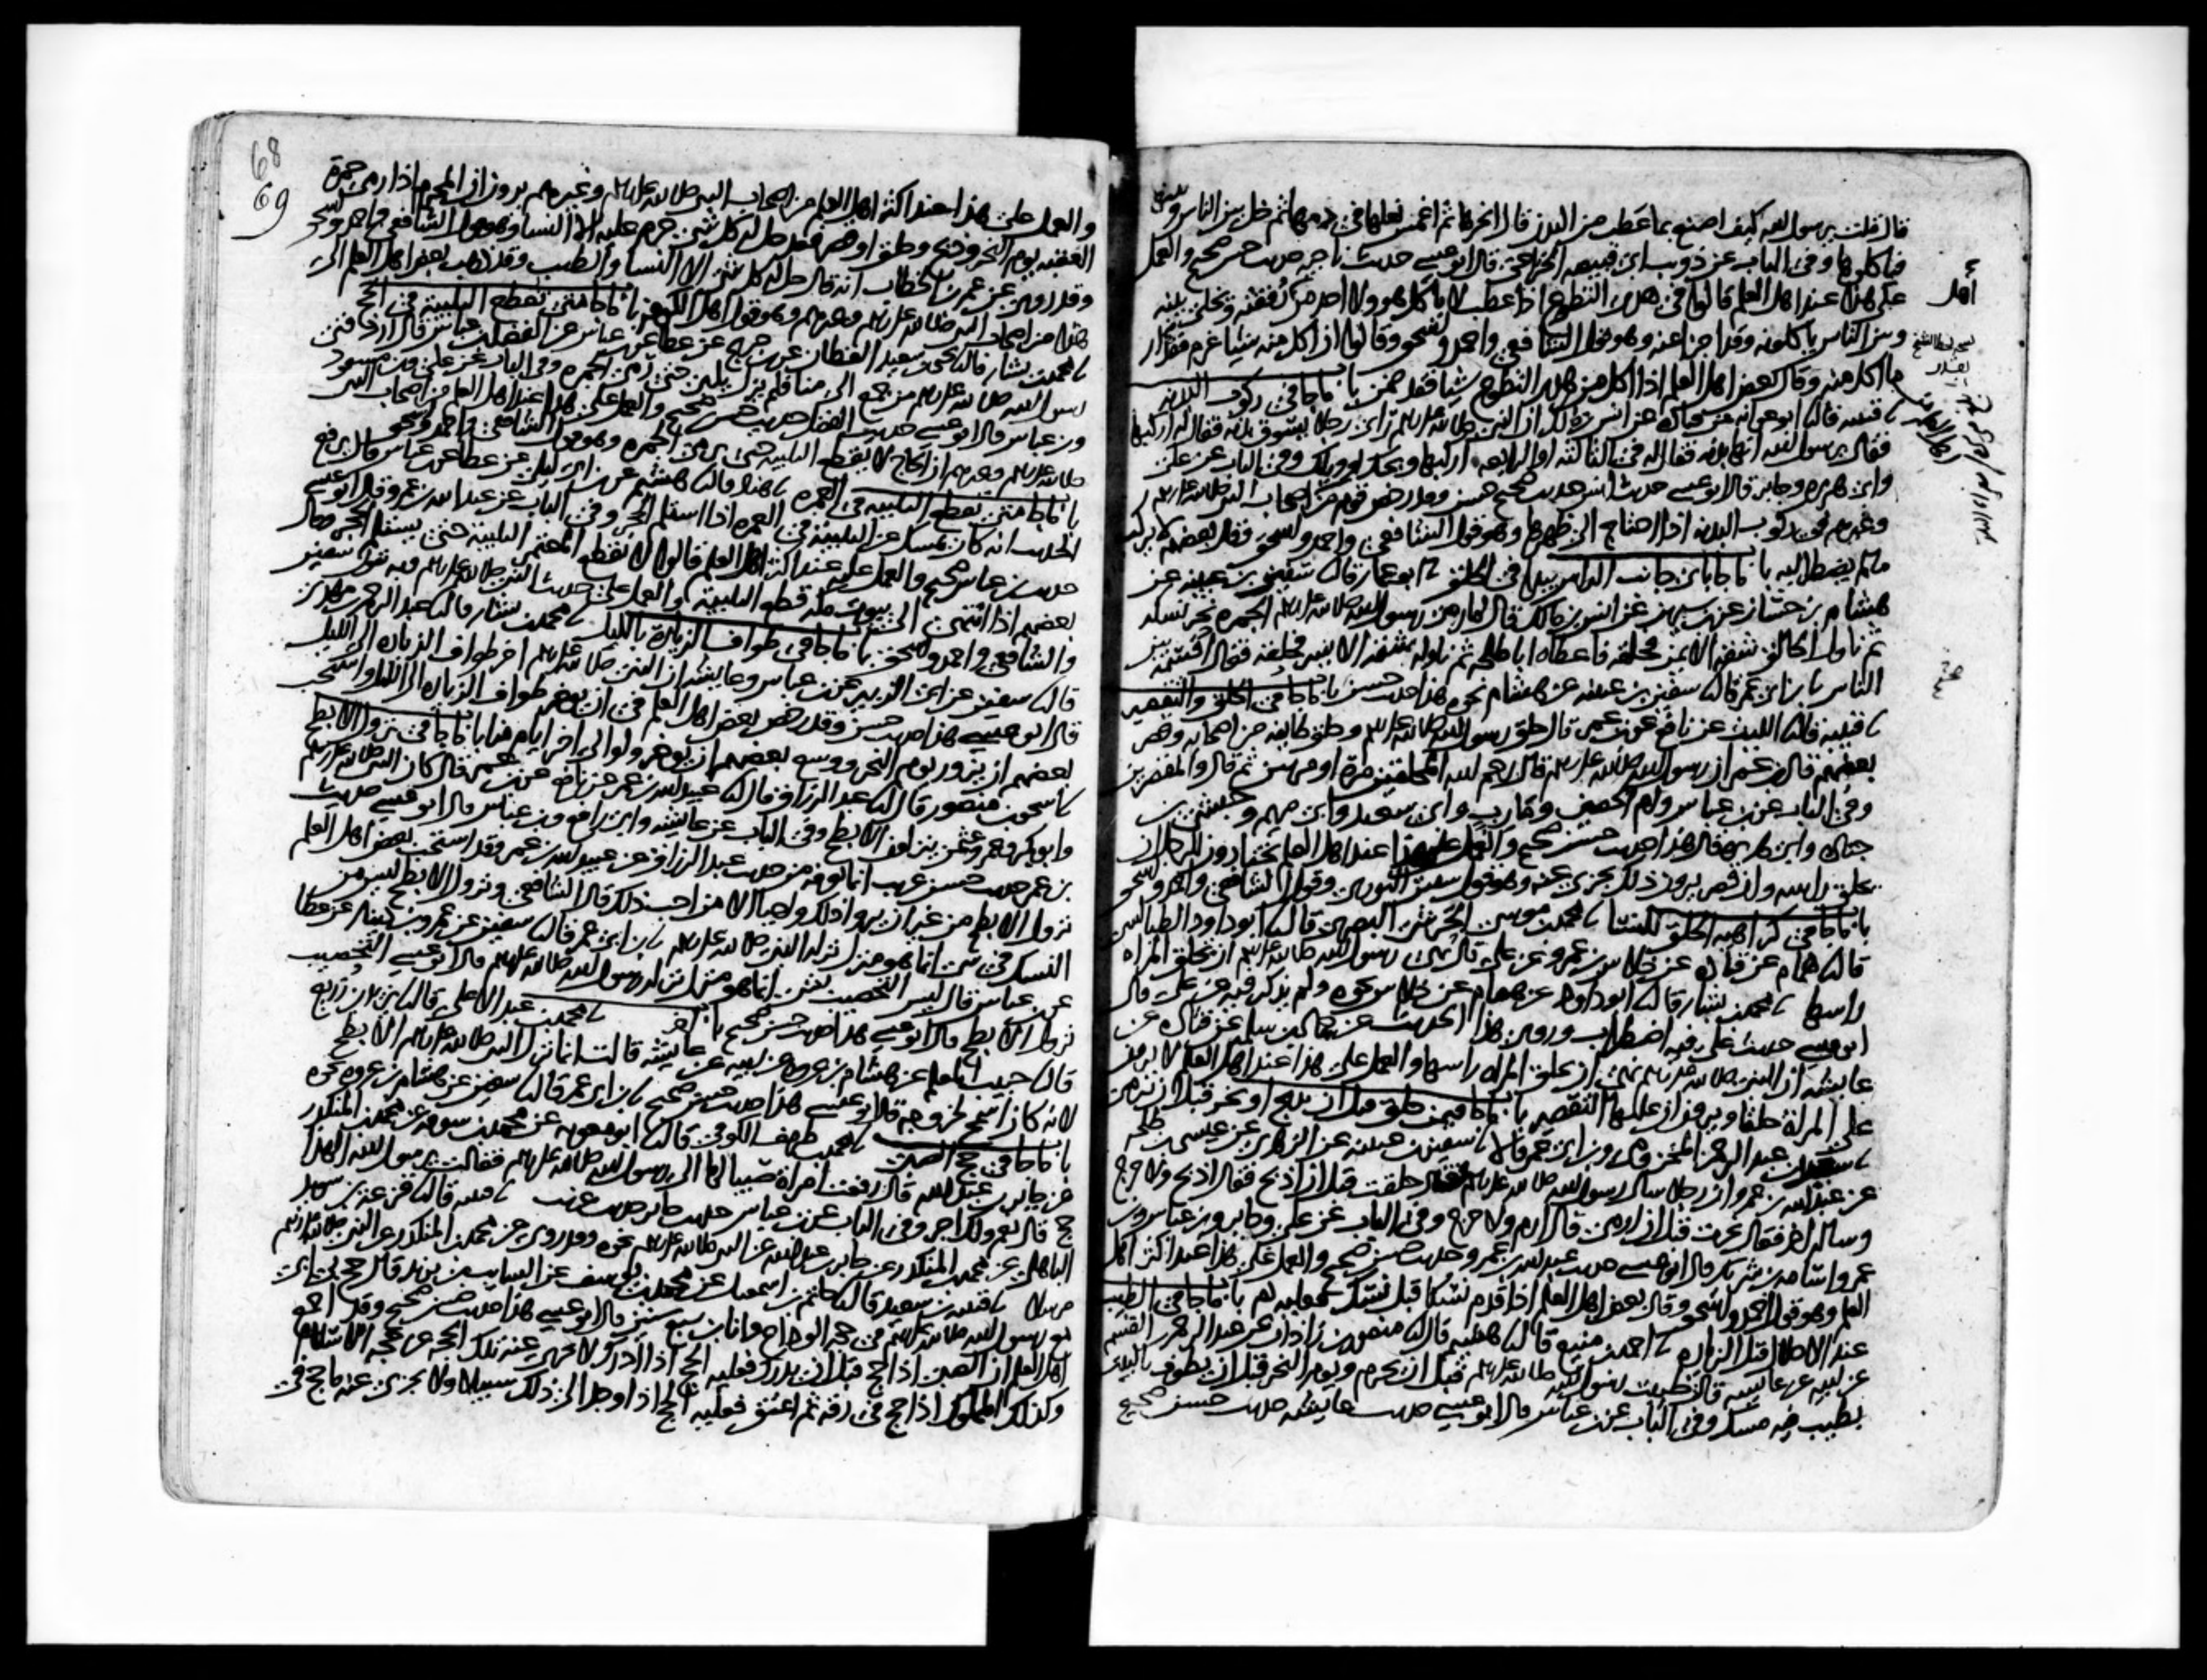 قال قلت يرسول الله كيف اصنع بما عطب من البدن قال انحرها ثم اغمس نعلها في دمها ثم خل بين الناس وبينها
فياكلوها وفي الباب عن ذويب ابي قبيصه الخزاعي قال ابو عيسى حديث ناجيه حديث حسن صحيح والعمل
على هذا عند اهل العلم قالوا في هدي التطوع اذا عطب لا ياكل هو ولا احد من رفقته ويخلى بينه
وبين الناس ياكلونه وقد اجزا عنه وهو قول الشافعي واحمد واسحق وقالوا ان اكل منه شيا غرم مقدار
ما اكل منه وقال بعض اهل العلم اذا اكل من هدي التطوع شيا فقد ضمن باب ما جا في ركوب البدنه
قتيبه قال ابو عوانه عن قتاده عن انس بن مالك ان النبي صلى الله عليه وسلم راى رجلا يسوق بدنه فقال له اركبها
فقال يرسول الله انها بدنه فقال له في الثالثه او الرابعه اركبها ويحك او ويلك وفي الباب عن علي
وابي هريره وجابر قال ابو عيسى حديث انس حديث صحيح حسن وقد رخص قوم من اصحاب النبي صلى الله عليه وسلم
وغيرهم في ركوب البدنه اذا احتاج الى ظهرها وهو قول الشافعي واحمد واسحق وقال بعضهم لا يركب
ما لم يضطر اليه باب ما جا باي جانب الراس يبدا في الحلق ابو عمار قال سفين بن عيينه عن
هشام بن حسان عن بن سيرين عن انس بن مالك قال لما رمى رسول الله صلى الله عليه وسلم الجمره نحر نسكه
ثم ناول الحالق شقه الايمن فحلقه فاعطاه ابا طلحه ثم ناوله شقه الايسر فحلقه فقال اقسمه بين
الناس بن ابي عمر قال سفين بن عيينه عن هشام نحوه هذا حديث حسن باب ما جا في الحلق والتقصير
قتيبه قال الليث عن نافع عن بن عمر قال حلق رسول الله صلى الله عليه وسلم وحلق طايفه من اصحابه وقصر
بعضهم قال بن عمر ان رسول الله صلى الله عليه وسلم قال رحم الله المحلقين مرة او مرتين ثم قال والمقصرين
وفي الباب عن بن عباس وام الحصين وقارب وابي سعيد وابي مريم وحبشي بن
جناده وابي هريره قال هذا حديث حسن صحيح والعمل على هذا عند اهل العلم يختارون للرجل ان
يحلق راسه وان قصر يرون ذلك يجزي عنه وهو قول سفين الثوري وقول الشافعي واحمد واسحق
باب ما جا في كراهيه الحلق للنسا محمد بن موسى الحرشي البصري قال ابو داود الطيالسي
قال همام عن قتاده عن خلاس بن عمرو عن علي قال نهى رسول الله صلى الله عليه وسلم ان تحلق المراه
راسها محمد بن بشار قال ابو داود عن همام عن خلاس نحوه ولم يذكر فيه عن علي قال
ابو عيسى حديث علي فيه اضطراب وروي هذا الحديث عن حماد بن سلمه عن قتاده عن
عايشه ان النبي صلى الله عليه وسلم نهى ان تحلق المراه راسها والعمل على هذا عند اهل العلم لا يرون
على المراة حلقا ويرون ان عليها التقصير باب ما جا فيمن حلق قبل ان يذبح او نحر قبل ان يرمي
سعيد بن عبد الرحمن المخزومي وبن ابي عمر قالا سفين بن عيينه عن الزهري عن عيسى بن طلحه
عن عبد الله بن عمرو ان رجلا سال رسول الله صلى الله عليه وسلم فقال حلقت قبل ان اذبح فقال اذبح ولا حرج
وساله اخر فقال نحرت قبل ان ارمي قال ارم ولا حرج وفي الباب عن علي وجابر وبن عباس وبن
عمر واسامه بن شريك قال ابو عيسى حديث عبد الله بن عمرو حديث حسن صحيح والعمل على هذا عند اكثر اهل
العلم وهو قول احمد واسحق وقال بعض اهل العلم اذا قدم نسكا قبل نسك فعليه دم باب ما جا في الطيب
عند الاحلال قبل الزياره احمد بن منيع قال هشيم قال منصور بن زاذان عن عبد الرحمن بن القسم
عن ابيه عن عايشه قالت طيبت رسول الله صلى الله عليه وسلم قبل ان يحرم ويوم النحر قبل ان يطوف بالبيت
بطيب فيه مسك وفي الباب عن بن عباس قال ابو عيسى حديث عايشه حديث حسن صحيح
اهل
68
69
والعمل على هذا عند اكثر اهل العلم من اصحاب النبي صلى الله عليه وسلم وغيرهم يرون ان المحرم اذا رمى جمرة
العقبه يوم النحر وذبح وحلق او قصر فقد حل له كل شي حرم عليه الا النسا وهو قول الشافعي واحمد واسحق
وقد روي عن عمر بن الخطاب انه قال حل له كل شي الا النسا والطيب وقد ذهب بعض اهل العلم الى
هذا من اصحاب النبي صلى الله عليه وسلم وغيرهم وهو قول اهل الكوفه باب ما جا متى تقطع التلبيه في الحج
محمد بن بشار قال يحيى بن سعيد القطان عن بن جريج عن عطا عن بن عباس عن الفضل بن عباس قال اردفني
رسول الله صلى الله عليه وسلم من جمع الى منا فلم يزل يلبي حتى رمى الجمره وفي الباب عن علي وبن مسعود
وبن عباس قال ابو عيسى حديث الفضل حديث حسن صحيح والعمل على هذا عند اهل العلم من اصحاب النبي
صلى الله عليه وسلم وغيرهم ان الحاج لا يقطع التلبيه حتى يرمي الجمره وهو قول الشافعي واحمد واسحق
باب ما جا متى تقطع التلبيه في العمره هناد قال هشيم عن بن ابي ليلى عن عطا عن بن عباس قال يرفع
الحديث انه كان يمسك عن التلبيه في العمره اذا استلم الحجر وفي الباب عن عبد الله بن عمرو قال ابو عيسى
حديث بن عباس صحيح والعمل عليه عند اكثر اهل العلم قالوا لا يقطع المعتمر التلبيه حتى يستلم الحجر وقال
بعضهم اذا انتهى الى بيوت مكه قطع التلبيه والعمل على حديث النبي صلى الله عليه وسلم وبه يقول سفين
والشافعي واحمد واسحق باب ما جا في طواف الزيارة بالليل محمد بن بشار قال عبد الرحمن بن مهدي
قال سفين عن ابي الزبير عن بن عباس وعايشه ان النبي صلى الله عليه وسلم اخر طواف الزياره الى الليل
قال ابو عيسى هذا حديث حسن وقد رخص بعض اهل العلم في ان يوخر طواف الزياره الى الليل واستحب
بعضهم ان يزور يوم النحر ووسع بعضهم ان يوخر ولو الى اخر ايام منا باب ما جا في نزول الابطح
اسحق بن منصور قال عبد الرزاق قال عبيد الله بن عمر عن نافع عن بن عمر قال كان النبي صلى الله عليه وسلم
وابو بكر وعمر وعثمن ينزلون الابطح وفي الباب عن عايشه وابي رافع وبن عباس قال ابو عيسى حديث
بن عمر حديث حسن غريب انما نعرفه من حديث عبد الرزاق عن عبيد الله بن عمر وقد استحب بعض اهل العلم
نزول الابطح من غير ان يروا ذلك واجبا الا من احب ذلك قال الشافعي ونزول الابطح ليس من
النسك في شي انما هو منزل نزله النبي صلى الله عليه وسلم بن ابي عمر قال سفين عن عمرو بن دينار عن عطا
عن بن عباس قال ليس التحصيب بشي انما هو منزل نزله رسول الله صلى الله عليه وسلم قال ابو عيسى التحصيب
نزول الابطح قال ابو عيسى هذا حديث حسن صحيح باب اخر محمد بن عبد الاعلى قال يزيد بن زريع
قال حبيب المعلم عن هشام بن عروه عن ابيه عن عايشه قالت انما نزل النبي صلى الله عليه وسلم الابطح
لانه كان اسمح لخروجه قال ابو عيسى هذا حديث حسن صحيح بن ابي عمر قال سفين عن هشام بن عروه نحوه
باب ما جا في حج الصبي محمد بن طريف الكوفي قال ابو معويه عن محمد بن سوقه عن محمد بن المنكدر
عن جابر بن عبد الله قال رفعت امراة صبيا لها الى رسول الله صلى الله عليه وسلم فقالت يرسول الله الهذا
حج قال نعم ولك اجر وفي الباب عن بن عباس حديث جابر حديث غريب قتيبه قال قزعه بن سويد
الباهلي عن محمد بن المنكدر عن جابر بن عبد الله عن النبي صلى الله عليه وسلم نحوه وقد روي عن محمد بن المنكدر عن النبي صلى الله عليه وسلم
مرسلا قتيبه بن سعيد قال حاتم بن اسمعيل عن محمد بن يوسف عن السايب بن يزيد قال حج بي ابي
مع رسول الله صلى الله عليه وسلم في حجه الوداع وانا بن سبع سنين قال ابو عيسى هذا حديث حسن صحيح وقد اجمع
اهل العلم ان الصبي اذا حج قبل ان يدرك فعليه الحج اذا ادرك ولا تجزي عنه تلك الحجه عن حجه الاسلام
وكذلك المملوك اذا حج في رقه ثم اعتق فعليه الحج اذا وجد الى ذلك سبيلا ولا يجزي عنه ما حج في